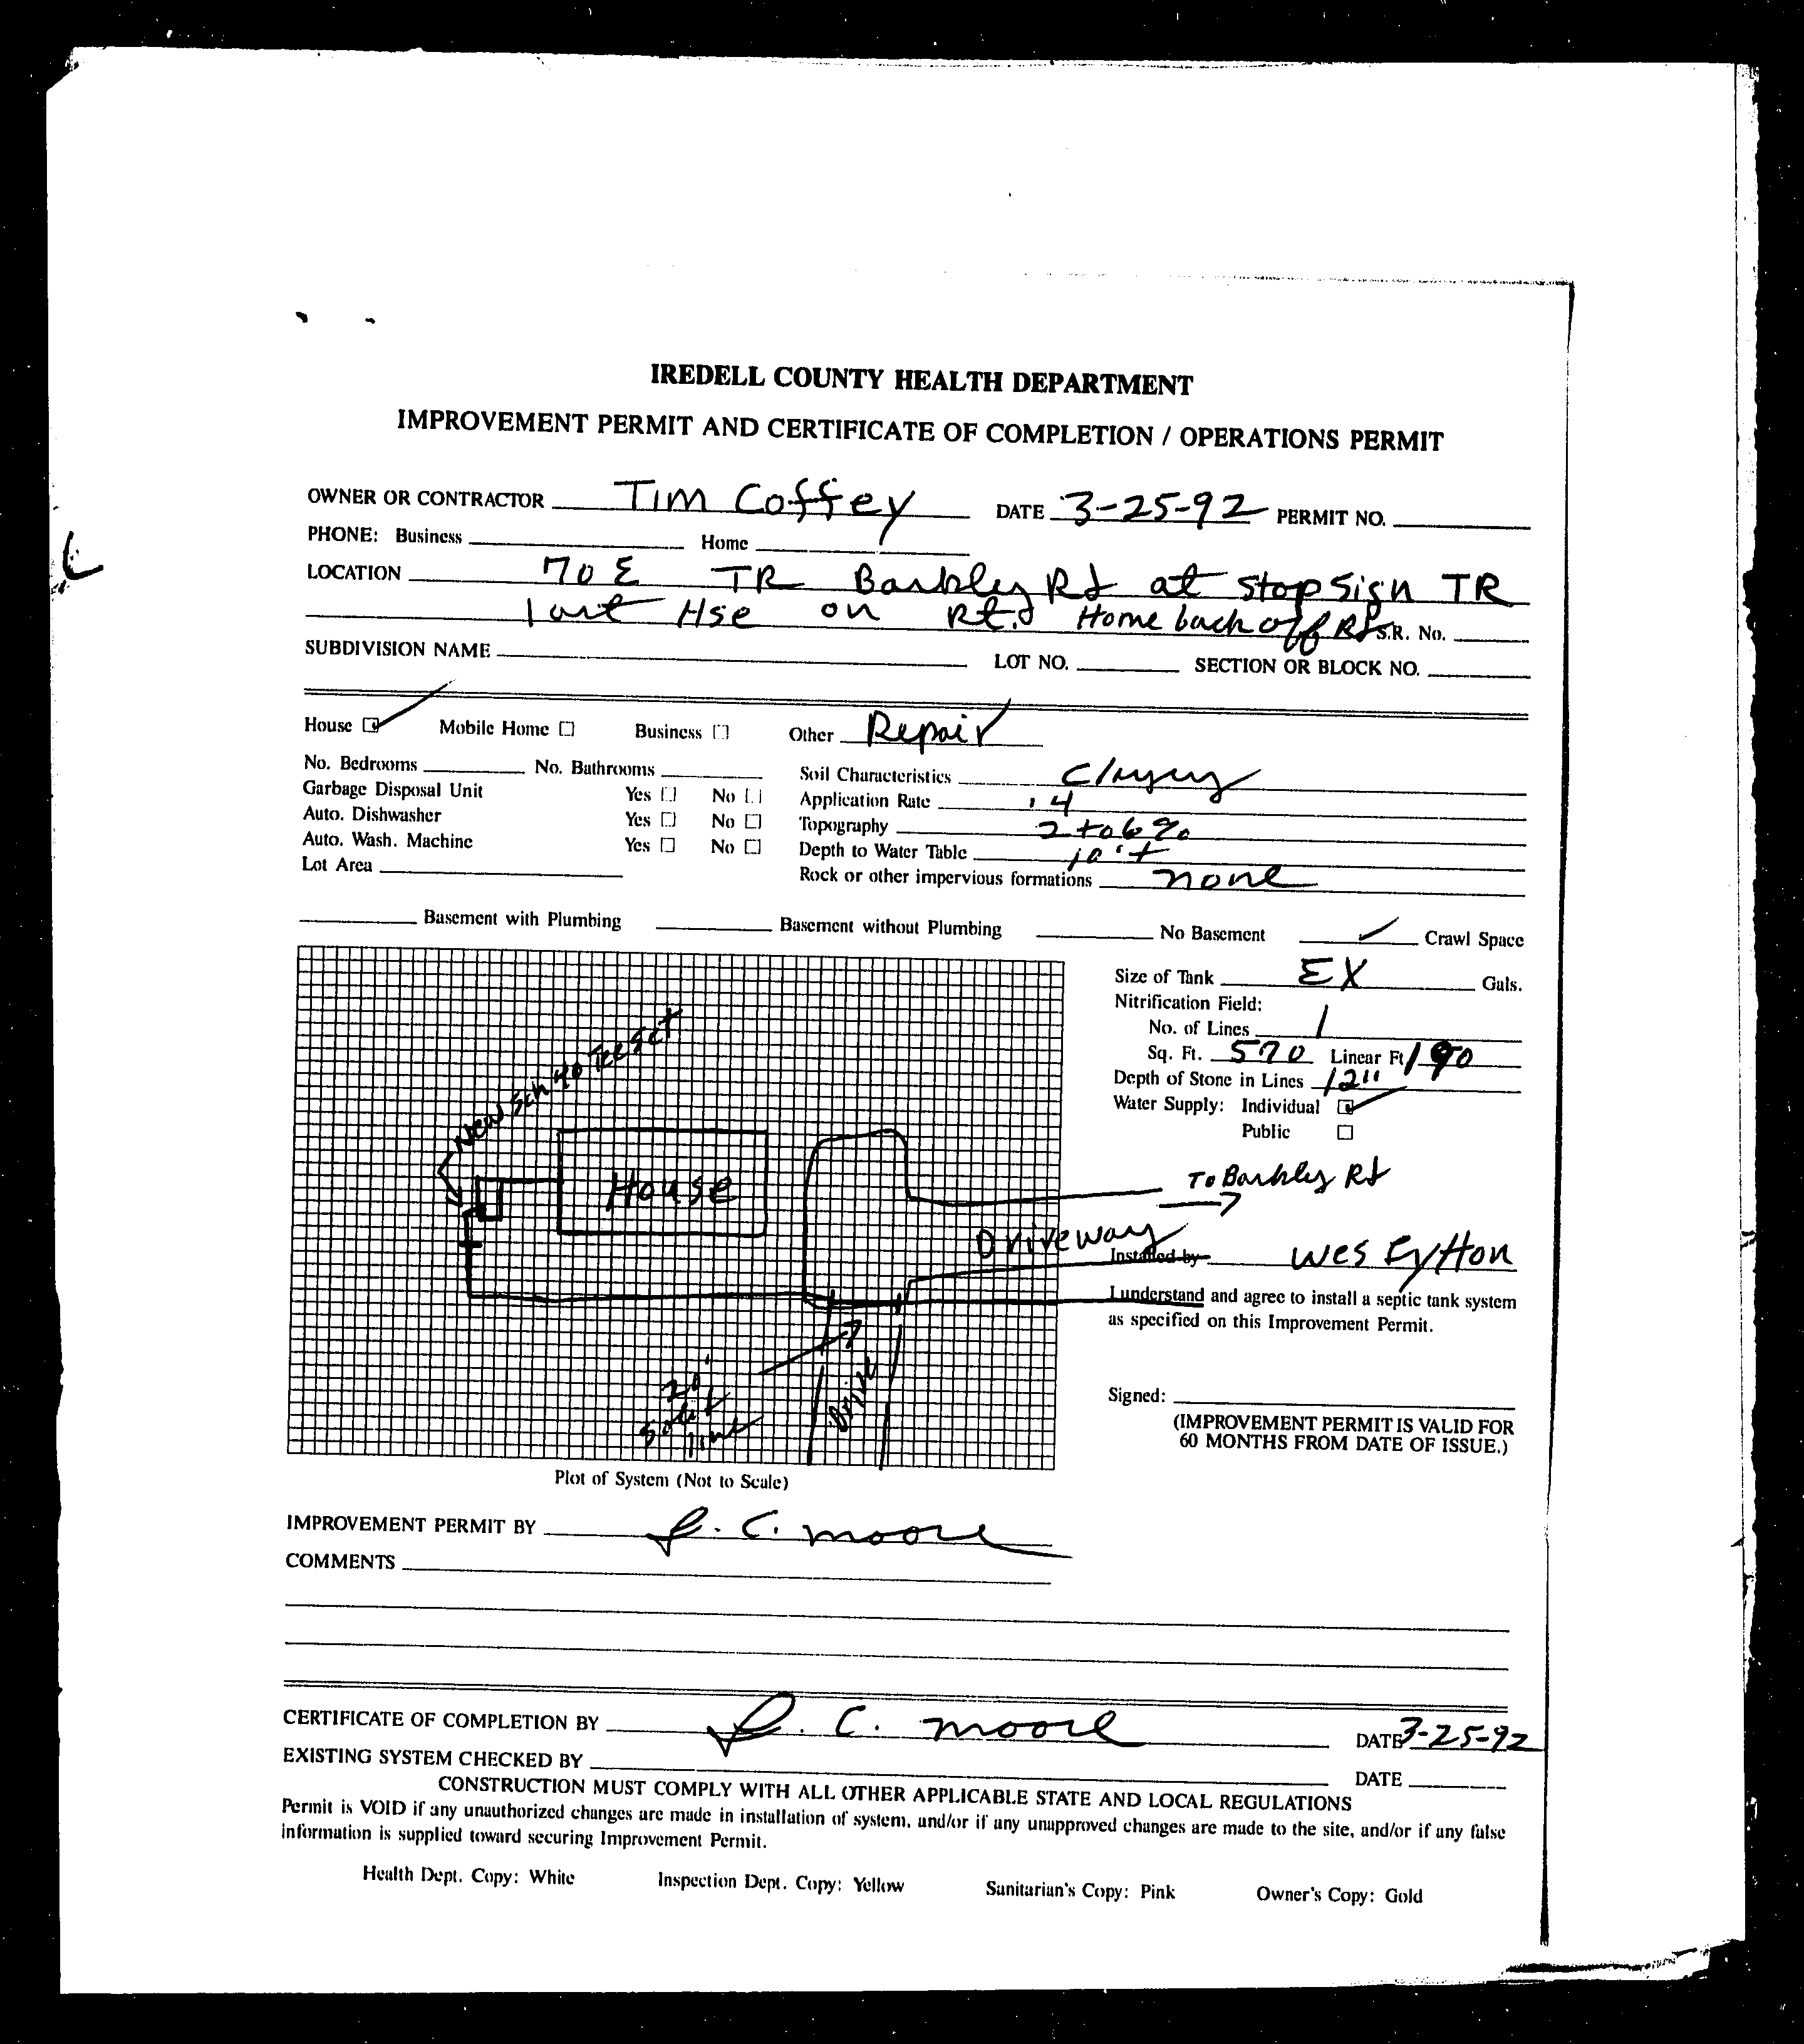 IREDELL COUNTY HEALTH DEPARTMENT
IMPROVEMENT PERMIT AND CERTIFICATE OF COMPLETION / OPERATIONS PERMIT
OWNER OR CONTRACTOR Tim Coffey DATE 3-25-92 PERMIT NO.
PHONE: Business Home
LOCATION 70 E TR Barkley Rd at stop sign TR
last Hse on Rt. Home back off Rd S.R. No.
SUBDIVISION NAME LOT NO. SECTION OR BLOCK NO.
House Mobile Home Business Other Repair
No. Bedrooms No. Bathrooms Soil Characteristics Clayey
Garbage Disposal Unit Yes No Application Rate .4
Auto. Dishwasher Yes No Topography 2 to 6%
Auto. Wash. Machine Yes No Depth to Water Table 10'+
Lot Area Rock or other impervious formations none
Basement with Plumbing Basement without Plumbing No Basement Crawl Space
Size of Tank EX Gals.
Nitrification Field:
No. of Lines 1
Sq. Ft. 570 Linear Ft 190
Depth of Stone in Lines 12"
Water Supply: Individual
Public
New Sch 40 Tee Set
House
To Barkley Rd
Driveway
Installed by Wes
I understand and agree to install a septic tank system
as specified on this Improvement Permit.
20'
Solid
line
Drive
Signed:
(IMPROVEMENT PERMIT IS VALID FOR
60 MONTHS FROM DATE OF ISSUE.)
Plot of System (Not to Scale)
IMPROVEMENT PERMIT BY C. Moore
COMMENTS
CERTIFICATE OF COMPLETION BY C. Moore DATE 3-25-92
EXISTING SYSTEM CHECKED BY DATE
CONSTRUCTION MUST COMPLY WITH ALL OTHER APPLICABLE STATE AND LOCAL REGULATIONS
Permit is VOID if any unauthorized changes are made in installation of system, and/or if any unapproved changes are made to the site, and/or if any false
information is supplied toward securing Improvement Permit.
Health Dept. Copy: White Inspection Dept. Copy: Yellow Sanitarian's Copy: Pink Owner's Copy: Gold